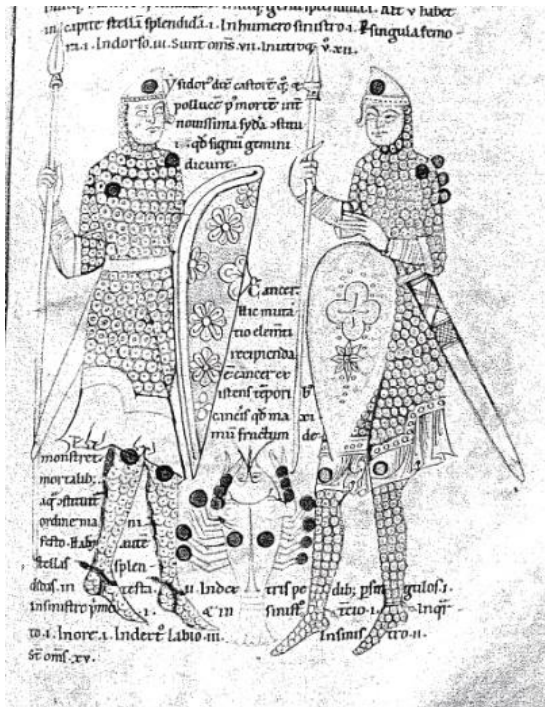 in capite stellā splendidā.1. In humero sinistro.1. Per singula femo
ra.1. In dorso.iii. Sunt om̄s.vii. In utroq; v̊.xii.
Ysidor᷒ dic̄ castorē q̊; &
pollucē p᷒ mortē int̄
nouissima syda ɔstitu
qđ signū gemini
dicunt.
Cancer
Hic mutā
tio elem̄ti
recipienda
ē cancer ex
istens tēpori b᷒
cancis qđ ma xi
mū fructum de
monstret
mortalib;
aq̊ ɔstituunt
ordine ma ni
festo. Hab& autē
stellis splen
didas. in testa.ii. In dex tris pe dib; p sin gulos.1.
in sinistro pmo.1. & in sinist᷒ tercio.1. In q̄r
to.1. In ore.1. In dext᷒ labio.iii. In sinis tro.ii.
St̄ om̄s.xv.